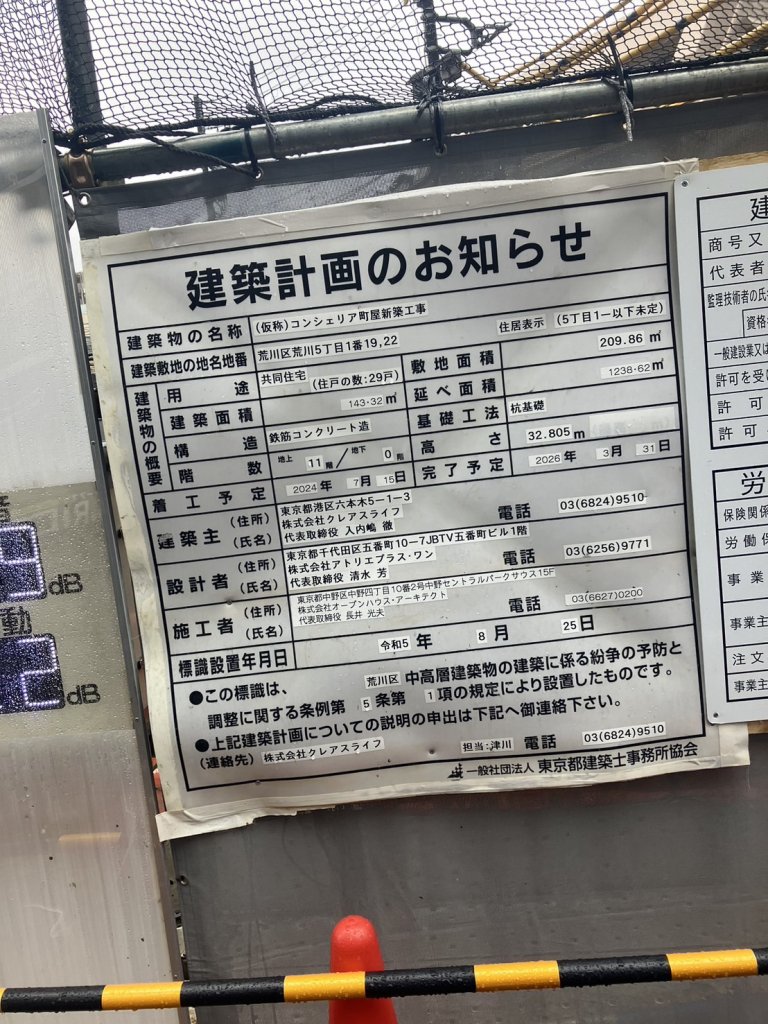 建築計画のお知らせ
建築物の名称 (仮称)コンシェリア町屋新築工事
建築敷地の地名地番 荒川区荒川5丁目1番19,22 住居表示 (5丁目1ー以下未定)
建築物の概要
用途 共同住宅 (住戸の数:29戸) 敷地面積 209.86㎡
建築面積 143.32㎡ 延べ面積 1238.62㎡
構造 鉄筋コンクリート造 基礎工法 杭基礎
階数 地上 11階/地下 0階 高さ 32.805m
着工予定 2024年 7月 15日 完了予定 2026年 3月 31日
建築主 (住所) (氏名)
東京都港区六本木5ー1ー3
株式会社クレアスライフ
代表取締役 入内嶋 徹
電話 03(6824)9510
設計者 (住所) (氏名)
東京都千代田区五番町10ー7JBTV五番町ビル1階
株式会社アトリエプラス・ワン
代表取締役 清水 芳
電話 03(6256)9771
施工者 (住所) (氏名)
東京都中野区中野四丁目10番2号中野セントラルパークサウス15F
株式会社オープンハウス・アーキテクト
代表取締役 長井 光夫
電話 03(6627)0200
標識設置年月日 令和5年 8月 25日
●この標識は、 荒川区 中高層建築物の建築に係る紛争の予防と
調整に関する条例第 5 条第 1 項の規定により設置したものです。
●上記建築計画についての説明の申出は下記へ御連絡下さい。
(連絡先) 株式会社クレアスライフ 担当:津川 電話 03(6824)9510
一般社団法人 東京都建築士事務所協会
建
商号又
代表者
監理技術者の氏
資格
一般建設業又は
許可を受
許可
許可
労
保険関係
労働保
事業
事業主
注文
事業主
音
dB
動
dB